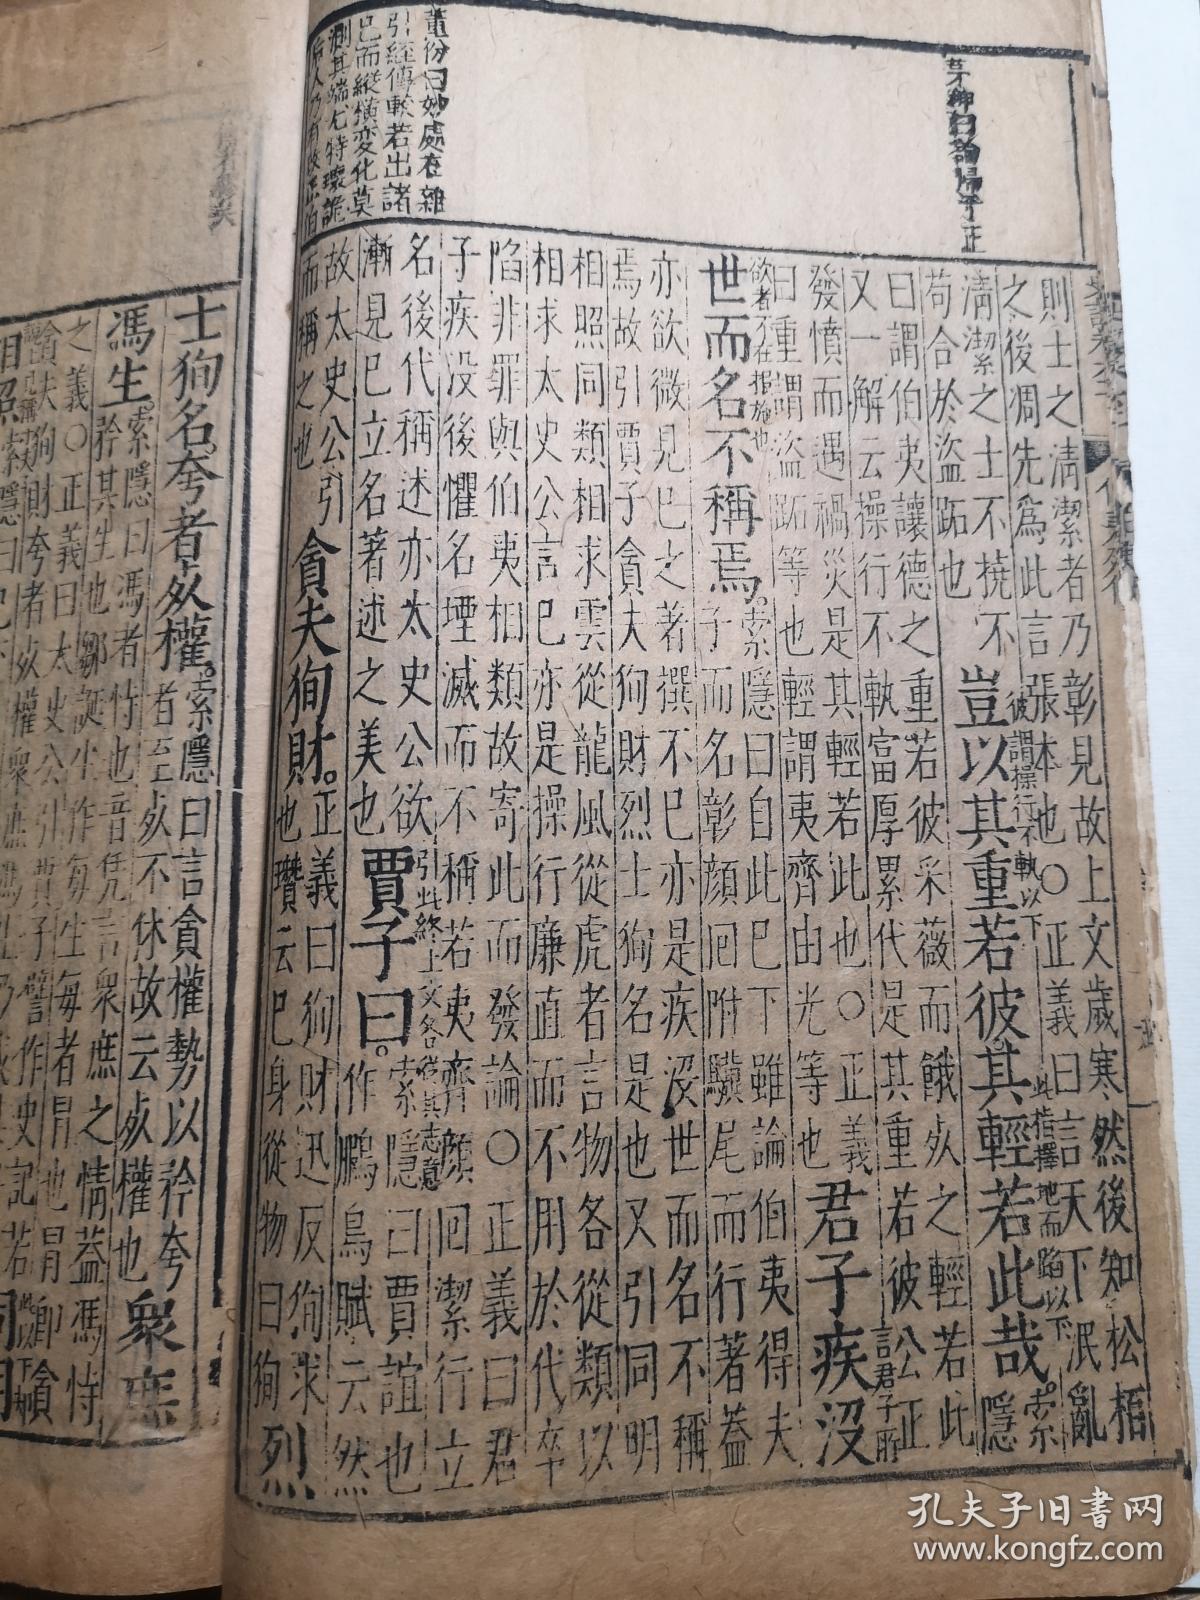 董份曰妙處在雜
引經傳較若出諸
已而縱橫變化莫
測其端尤特瓌詭
則士之清潔者乃彰見故上文歲寒然後知松栢
之後凋先為此言張本也○正義曰言天下泯亂
清潔之士不撓不
苟合於盜跖也
豈以其重若彼其輕若此哉索
隱
謂操行不軌以下
此指擇地而蹈以下
曰謂伯夷讓德之重若彼采薇而餓死之輕若此
又一解云操行不軌富厚累代是其重若彼公正
發憤而遇禍災是其輕若此也○正義
曰重謂盜跖等也輕謂夷齊由光等也
君子疾沒
言君子所
欲者不在報施也
世而名不稱焉索隱曰自此已下雖論伯夷得夫
子而名彰顏回附驥尾而行著蓋
亦欲微見已之著撰不已亦是疾沒世而名不稱
焉故引賈子貪夫狥財烈士狥名是也又引同明
相照同類相求雲從龍風從虎者言物各從類以
相求太史公言已亦是操行廉直而不用於代卒
陷非罪與伯夷相類故寄此而發論○正義曰君
子疾沒後懼名堙滅而不稱若夷齊顏回潔行立
名後代稱述亦太史公欲
漸見已立名著述之美也
引此終上文各從其志意
賈子曰索隱曰賈誼也
作鵩鳥賦云然
故太史公引
而稱之也
貪夫狥財正義曰狥財迅反狥求
也瓚云已身從物曰狥
烈
士狥名夸者死權索隱曰言貪權勢以矜夸
者至死不休故云死權也
眾庶
馮生索隱曰馮者恃也音凭言眾庶之情蓋馮恃
矜其生也鄒誕生作每生每者冒也冒即貪
之義○正義曰太史公引賈子譬作史記若
貪夫狥財夸者死權眾庶馮生乃成
同明
相照索隱曰已下
孔夫子旧书网
www.kongfz.com